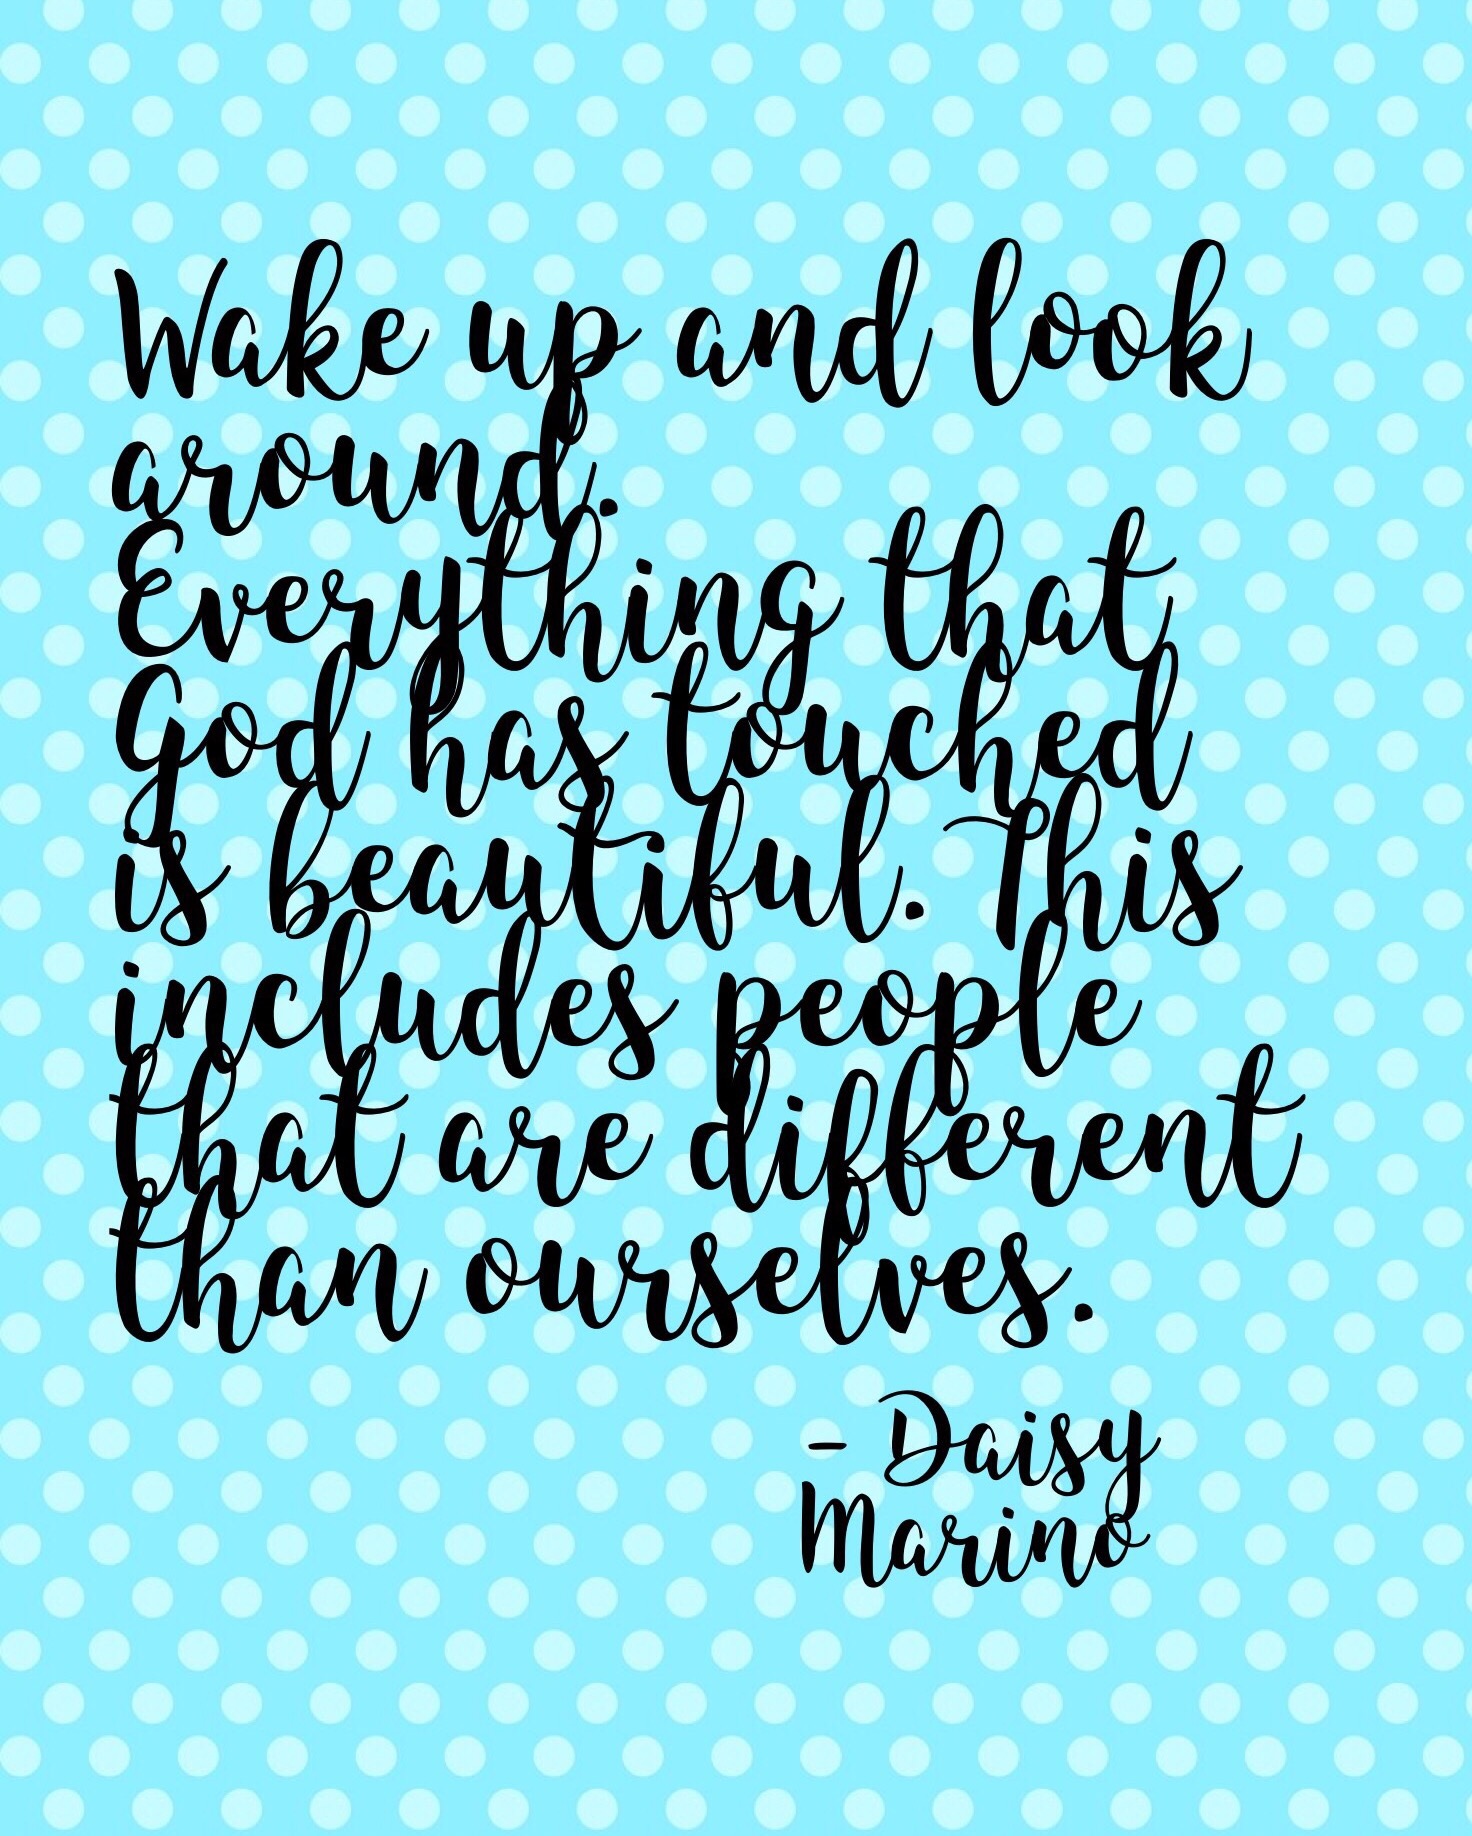 Wake up and look
around.
Everything that
God has touched
is beautiful. This
includes people
that are different
than ourselves.
- Daisy
Marino